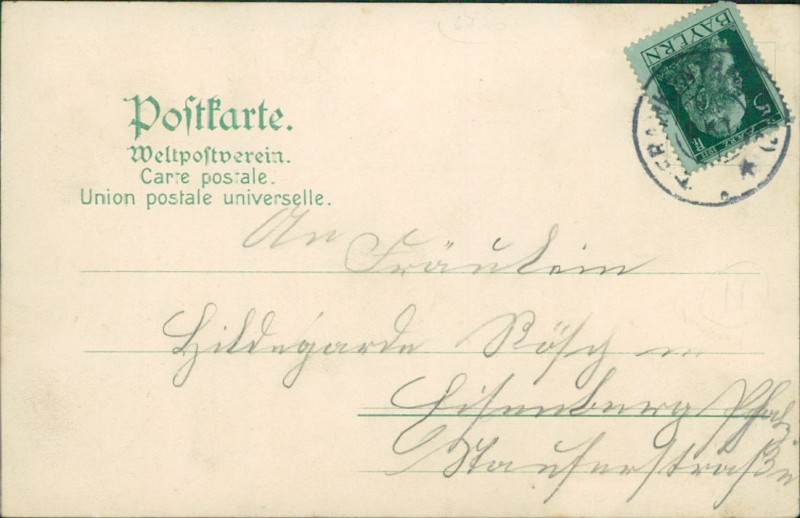 Postkarte.
Weltpostverein.
Carte postale.
Union postale universelle.
BAYERN
5
(2)
An
Fräulein
Hildegarde Rösch in
Eisenberg Pfalz
Stauferstraße
N